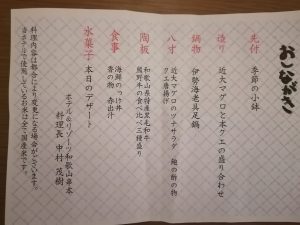 おしながき
先付 季節の小鉢
造り 近大マグロと本クエの盛り合わせ
鍋物 伊勢海老具足鍋
八寸 近大マグロのツナサラダ 鮑の酢の物
クエ唐揚げ
陶板 和歌山県特産黒毛和牛
熊野牛の食べ比べ三種盛り
食事 海鮮のっけ丼
香の物 赤出汁
水菓子 本日のデザート
ホテル&リゾーツ和歌山串本
料理長 中村 茂樹
料理内容は都合により変更になる場合がございます。
当ホテルで使用しているお米は全て国産米です。